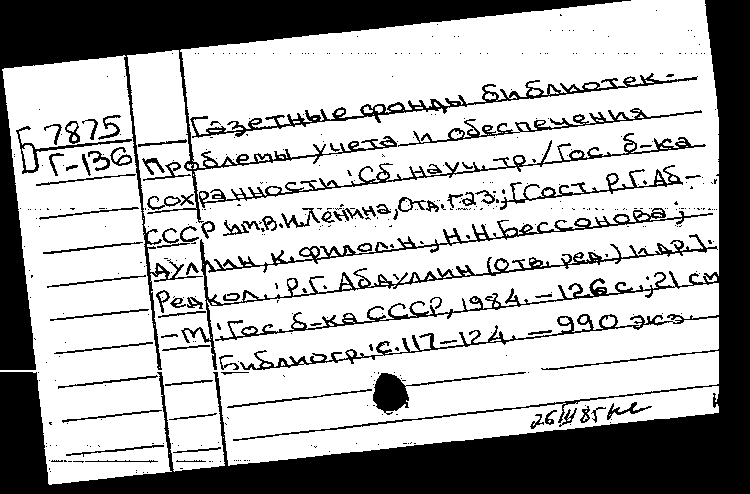 7875
Г-136
Газетные фонды библиотек.-
Проблемы учета и обеспечения
сохранности: Сб. науч. тр./Гос. б-ка
СССР им. В.И. Ленина, Отд. газ.; [Сост. Р.Г. Аб-
дуллин, к. филол. н., Н.Н. Бессонова;
Редкол.: Р.Г. Абдуллин (отв. ред.) и др.].
-М.: Гос. б-ка СССР, 1984. - 126 с.; 21 см
Библиогр.: с. 117-124. - 990 экз.
26/III 85